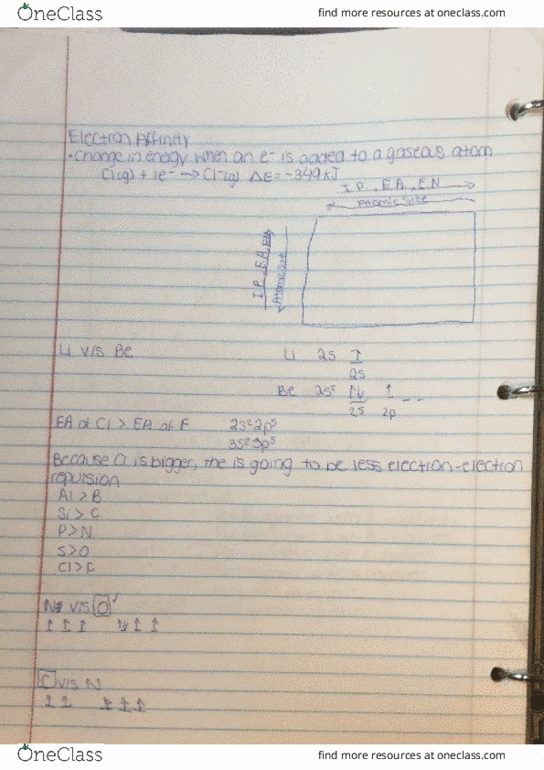 OneClass find more resources at oneclass.com
Electron Affinity
• change in energy when an e⁻ is added to a gaseous atom
Cl(g) + 1e⁻ → Cl⁻(g) ΔE = -349kJ
I.P., E.A., E.N
Atomic Size
I.P., E.A., E.N
Atomic Size
Li v/s Be Li 2s 1
2s
Be 2s² 1↓ 1 _ _
2s 2p
EA of Cl > EA of F 2s²2p⁵
3s²3p⁵
Because Cl is bigger, the is going to be less electron-electron
repulsion
Al > B
Si > C
P > N
S > O
Cl > F
N v/s O ✓
↑ ↑ ↑ ↑↓ ↑ ↑
C v/s N
↑ ↑ ↑ ↑ ↑
OneClass find more resources at oneclass.com